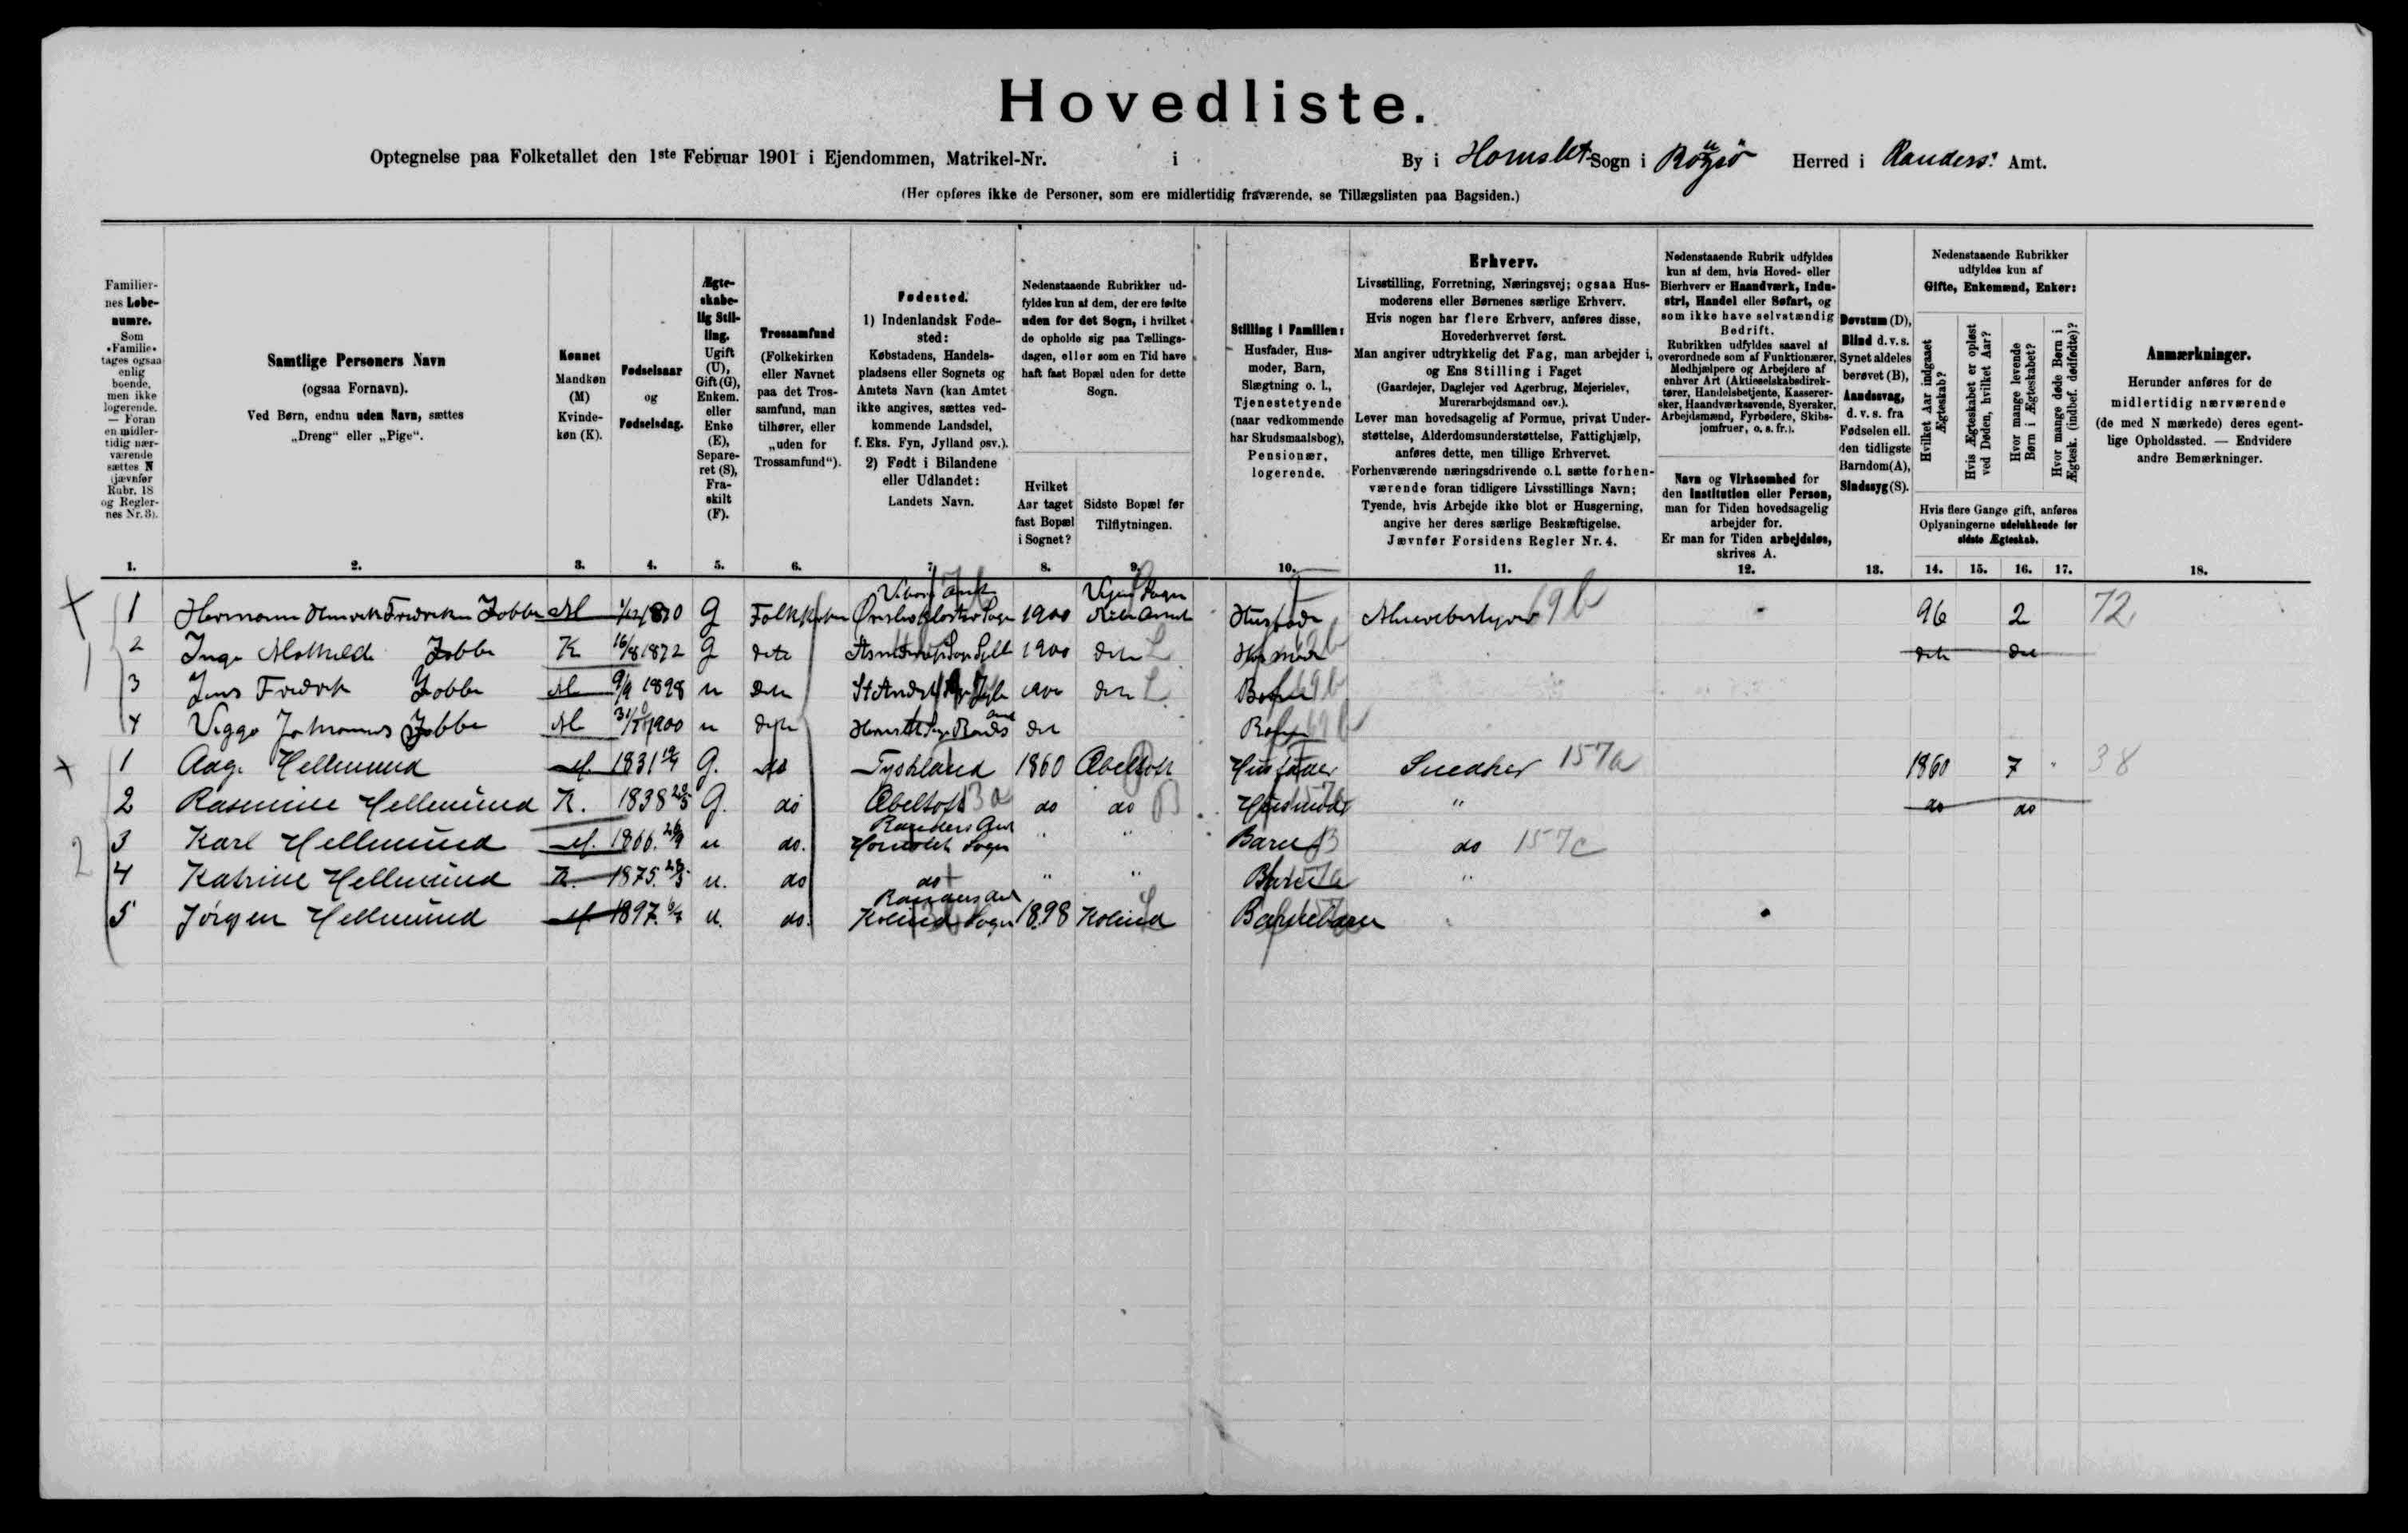 Hovedliste.
Optegnelse paa Folketallet den 1ste Februar 1901 i Ejendommen, Matrikel-Nr. i By i Hornslet Sogn i Rougsø Herred i Randers Amt.
(Her opføres ikke de Personer, som ere midlertidig fraværende, se Tillægslisten paa Bagsiden.)
Familiernes Løbenumre.
Som «Familie» tages ogsaa enlig boende, men ikke logerende. — Foran en midlertidig nærværende sættes N (jævnfør Rubr. 18 og Reglernes Nr. 3).
Samtlige Personers Navn
(ogsaa Fornavn).
Ved Børn, endnu uden Navn, sættes
„Dreng“ eller „Pige“.
Kønnet
Mandkøn (M)
Kvindekøn (K).
Fødselsaar
og
Fødselsdag.
Ægteskabelig Stilling.
Ugift (U), Gift (G), Enkem. eller Enke (E), Separeret (S), Fraskilt (F).
Trossamfund
(Folkekirken eller Navnet paa det Trossamfund, man tilhører, eller „uden for Trossamfund“).
Fødested.
1) Indenlandsk Fødested:
Købstadens, Handelspladsens eller Sognets og Amtets Navn (kan Amtet ikke angives, sættes vedkommende Landsdel, f. Eks. Fyn, Jylland osv.).
2) Født i Bilandene eller Udlandet:
Landets Navn.
Nedenstaaende Rubrikker udfyldes kun af dem, der ere fødte uden for det Sogn, i hvilket de opholde sig paa Tællingsdagen, eller som en Tid have haft fast Bopæl uden for dette Sogn.
Hvilket Aar taget fast Bopæl i Sognet?
Sidste Bopæl før Tilflytningen.
Stilling i Familien:
Husfader, Husmoder, Barn, Slægtning o. l., Tjenestetyende (naar vedkommende har Skudsmaalsbog), Pensionær, logerende.
Erhverv.
Livsstilling, Forretning, Næringsvej; ogsaa Husmoderens eller Børnenes særlige Erhverv.
Hvis nogen har flere Erhverv, anføres disse, Hovederhvervet først.
Man angiver udtrykkelig det Fag, man arbejder i, og Ens Stilling i Faget
(Gaardejer, Daglejer ved Agerbrug, Mejerielev, Murerarbejdsmand osv.).
Lever man hovedsagelig af Formue, privat Understøttelse, Alderdomsunderstøttelse, Fattighjælp, anføres dette, men tillige Erhvervet.
Forhenværende næringsdrivende o. l. sætte forhenværende foran tidligere Livsstillings Navn;
Tyende, hvis Arbejde ikke blot er Husgerning, angive her deres særlige Beskæftigelse.
Jævnfør Forsidens Regler Nr. 4.
Nedenstaaende Rubrik udfyldes kun af dem, hvis Hoved- eller Bierhverv er Haandværk, Industri, Handel eller Søfart, og som ikke have selvstændig Bedrift.
Rubrikken udfyldes saavel af overordnede som af Funktionærer, Medhjælpere og Arbejdere af enhver Art (Aktieselskabsdirektører, Handelsbetjente, Kasserersker, Haandværkssvende, Syersker, Arbejdsmænd, Fyrbødere, Skibsjomfruer, o. s. fr.).
Navn og Virksomhed for den Institution eller Person, man for Tiden hovedsagelig arbejder for.
Er man for Tiden arbejdsløs, skrives A.
Døvstum (D), Blind d. v. s. Synet aldeles berøvet (B), Aandssvag, d. v. s. fra Fødselen ell. den tidligste Barndom (A), Sindssyg (S).
Nedenstaaende Rubrikker udfyldes kun af Gifte, Enkemænd, Enker:
Hvilket Aar indgaaet Ægteskab?
Hvis Ægteskabet er opløst ved Døden, hvilket Aar?
Hvor mange levende Børn i Ægteskabet?
Hvor mange døde Børn i Ægtesk. (indbef. dødfødte)?
Hvis flere Gange gift, anføres Oplysningerne udelukkende for sidste Ægteskab.
Anmærkninger.
Herunder anføres for de midlertidig nærværende (de med N mærkede) deres egentlige Opholdssted. — Endvidere andre Bemærkninger.
1. 2. 3. 4. 5. 6. 7. 8. 9. 10. 11. 12. 13. 14. 15. 16. 17. 18.
1 M 1870 G Viborg Amt Sogn 1900 Ribe Amt Husfader 19b 96 2 72
2 K 16/8 1872 G 1900 L 19b
3 M 9/9 1898 u L 19b
4 Viggo Johannes M 1900 u 19b
1 Aage Hellemund M. 1831 G. do Tyskland 1860 Æbeltoft Husfader Snedker 157a 1860 7 38
2 Rasmine Hellemund K. 1838 G. do Æbeltoft do do B Husmoder " do do
3 Karl Hellemund M. 1866 u do. Randers Amt Hornslet Sogn " " Barn do 157c
4 Katrine Hellemund K. 1875 u. do do " " Barn "
5 Jørgen Hellemund M 1897 u. do. Randers Amt Kolind Sogn 1898 Kolind Barnebarn
2